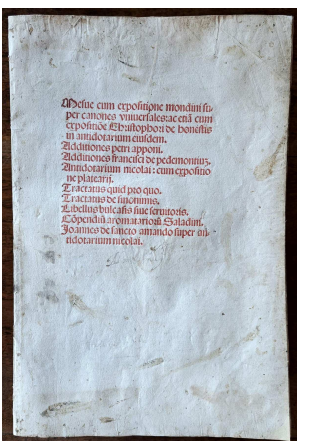 Mesue cum expositione mondini su-
per canones vniuersales: ac etiã cum
expositiõe Christophori de honestis
in antidotarium eiusdem.
Additiones petri apponi.
Additiones francisci de pedemontiuȝ.
Antidotarium nicolai: cum expositio
ne platearij.
Tractatus quid pro quo.
Tractatus de sinonimis.
Libellus bulcasis siue seruitoris.
Cõpendiũ aromatariorũ Saladini.
Joannes de sancto amando super an-
tidotarium nicolai.